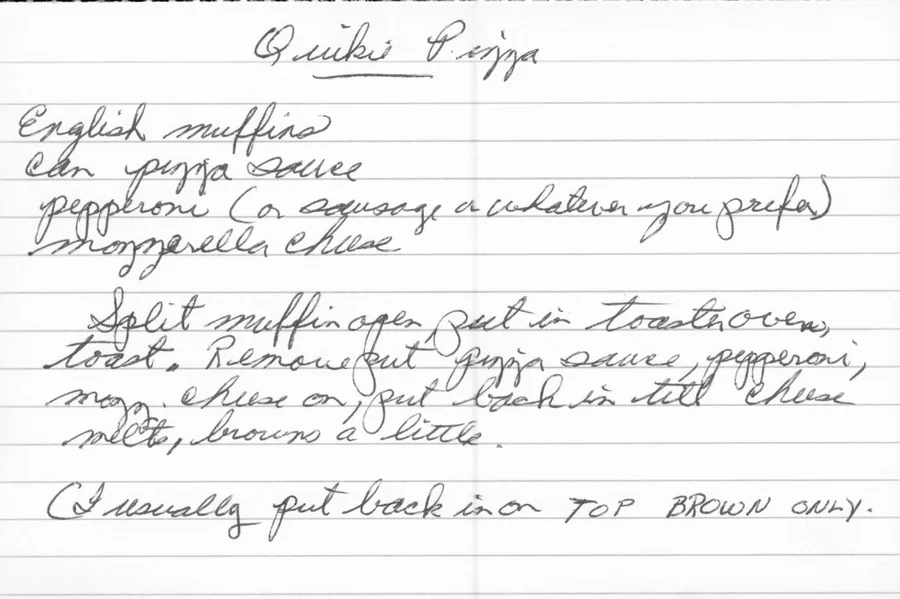 Quikie Pizza
English muffins
can pizza sauce
pepperoni (or sausage or whatever you prefer)
mozzarella cheese
Split muffin open, put in toaster oven,
toast. Remove put pizza sauce, pepperoni,
mozz. cheese on, put back in till cheese
melts, browns a little.
(I usually put back in on TOP BROWN ONLY.